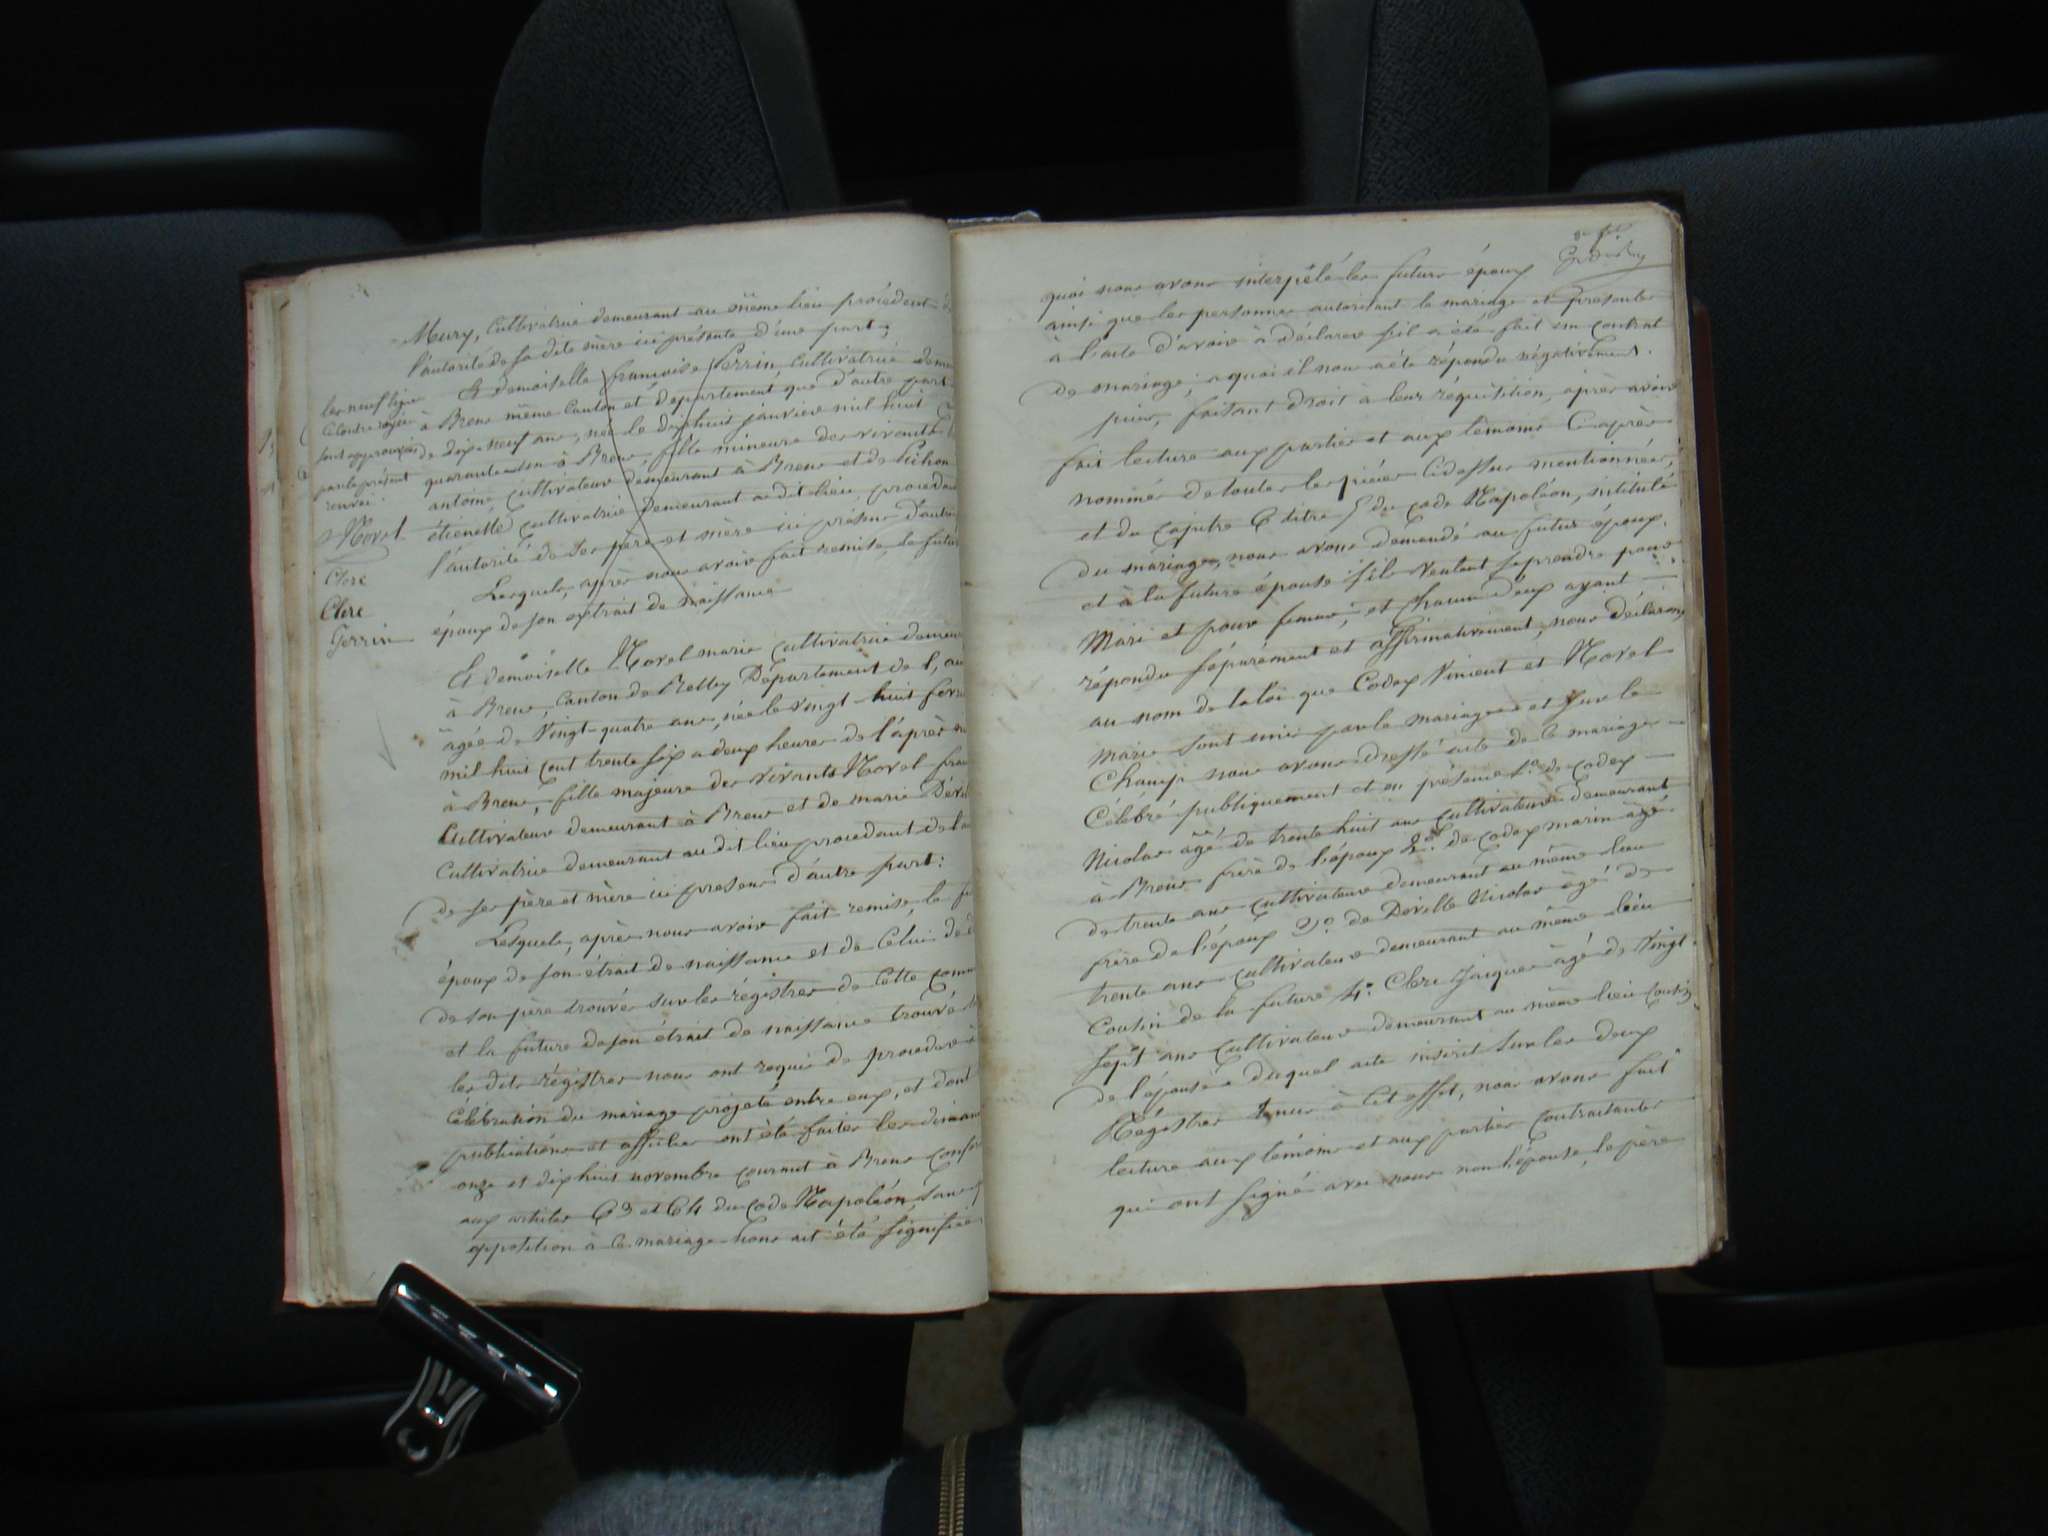 Mury, Cultivatrice demeurant au même lieu procédent de
l'autorité de sa dite mère ici présente d'une part;
Et demoiselle françoise Perrin Cultivatrice demeu
à Brens même Canton et département que d'autre part
de dix neuf ans, née le dix huit janvier mil huit
quarante un à Brens, fille mineure des vivants
antoine, Cultivateur demeurant à Brens et de
étienette Cultivatrice demeurant au dit lieu, procédan
l'autorité de ses père et mère ici présens d'autre
Lesquels, après nous avoir fait remise, le futur
époux de son extrait de naissance
les neuf lignes
Ci Contre rayées
sont approuvées
par le présent
renvoi.
Morel
Clerc
Clerc
Perrin
Et demoiselle Morel marie Cultivatrice demeur
à Brens, Canton de Belley Département de l'
âgée de Vingt-quatre ans, née le vingt-huit fevri
mil huit cent trente six a deux heures de l'après m
à Brens, fille majeure des vivants Morel fran
Cultivateur demeurant à Brens et de marie Devil
Cultivatrice demeurant au dit lieu procedant de l'au
de ses père et mère ici presens d'autre part:
Lesquels, après nous avoir fait remise, le fu
époux de son étrait de naissance et de Celui de
de son père trouvés sur les régistres de Cette Comm
et la future de son étrait de naissance trouvé
les dits régistres nous ont requis de procéder à
Célébration du mariage projeté entre eux, et dont
publications et affiches ont été faites les diman
onze et dix huit novembre courant à Brens Conf
aux articles 63 et 64 du Code Napoléon, sans
opposition à Ce mariage nous ait été signifiée
quoi nous avons interpélé les futurs époux
ainsi que les personnes autorisant le mariage et présentes
à l'acte d'avoir à déclarer s'il a été fait un contrat
de mariage; a quoi il nous a été répondu négativement.
puis, faisant droit à leur réquisition, après avoir
fait lecture aux parties et aux témoins Ci après
nommés de toutes les pièces Cidessus mentionnées,
et du capitre 6 titre 5 du Code Napoléon, intitulé
du mariage, nous avons demandé au futur époux.
et à la future épouse s'ils veulent se prendre pour
Mari et pour femme; et chacun d'eux ayant
répondu séparément et affirmativement, nous déclarons
au nom de la loi que Codex Vincent et Morel
Marie sont unis par le mariage et sur le
Champ nous avons dressé acte de Ce mariage
Célébré publiquement et en présence 1.° de Codex
Nicolas âgé de trente huit ans Cultivateur demeurant
à Brens frère de l'époux 2.° de Codex marin âgé
de trente ans Cultivateur demeurant au même lieu
frère de l'époux 3.° de Deville Nicolas âgé de
trente ans Cultivateur demeurant au même lieu
Cousin de la future 4.° Clerc Jacques âgé de Vingt
Sept ans Cultivateur demeurant au même lieu Cousin
de l'épouse duquel acte inscrit sur les deux
Régistres tenus à Cet effet, nous avons fait
lecture aux témoins et aux parties Contractantes
qui ont signé avec nous non l'épouse, le père